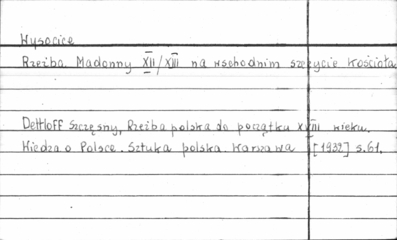 Wysocice
Rzeźba Madonny XII/XIII na wschodnim szczycie kościoła
Dettloff Szczęsny, Rzeźba polska do początku XVIII wieku.
Wiedza o Polsce. Sztuka polska. Warszawa [1932] s.61.